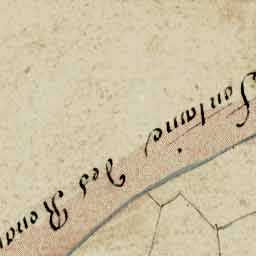 Fontaine des Renar